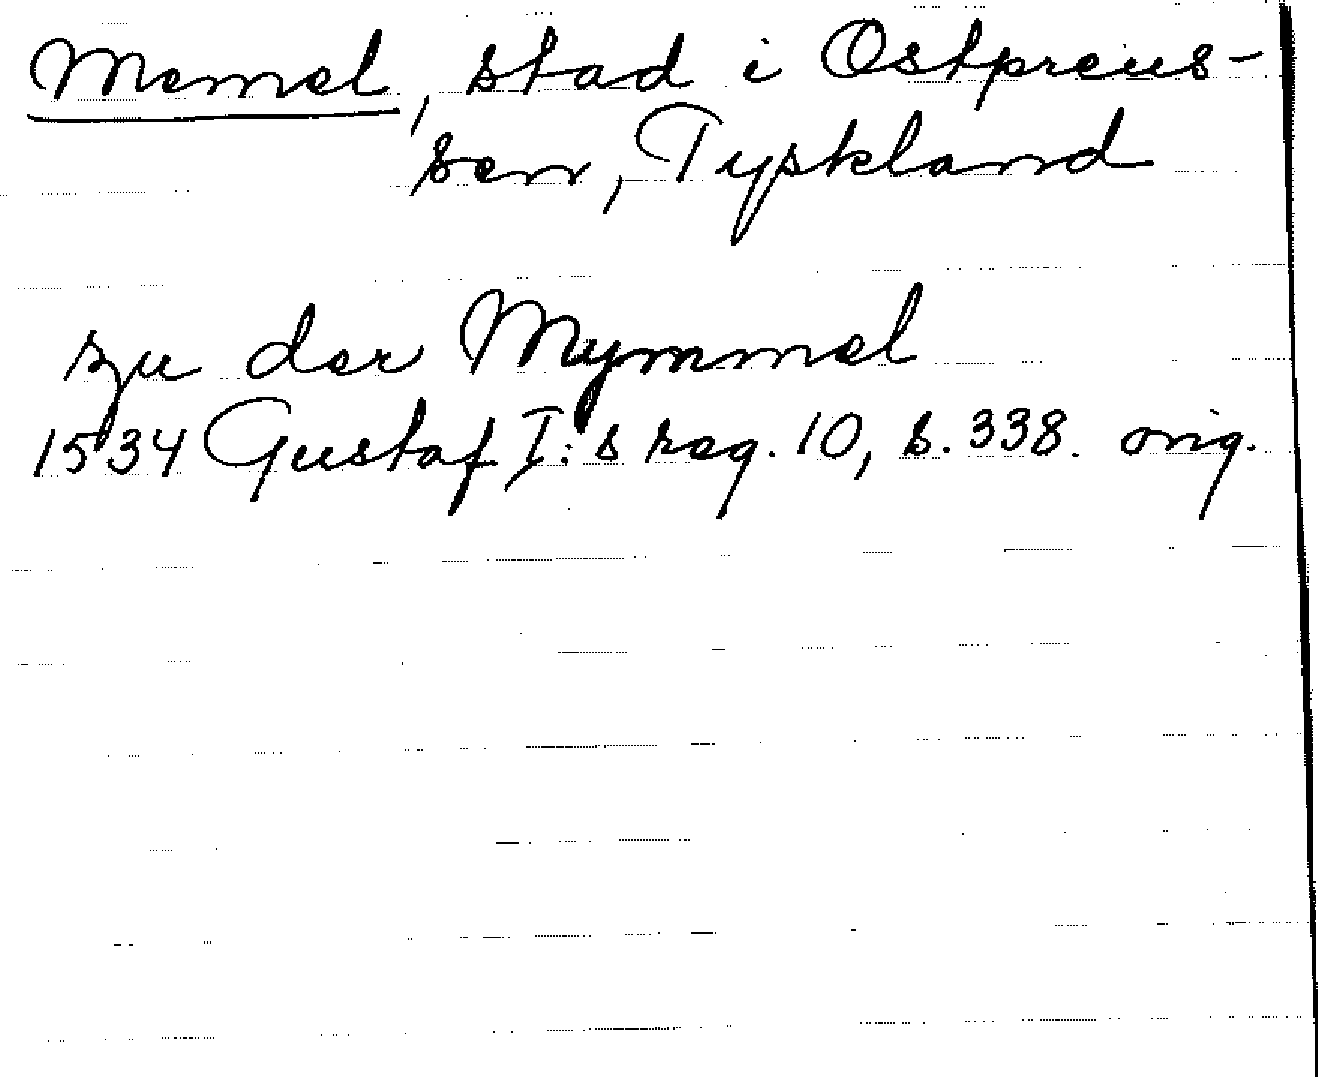 Memel, stad i Ostpreus-
sen, Tyskland
zu der Mymmel
1534 Gustaf I:s reg. 10, s. 338. orig.